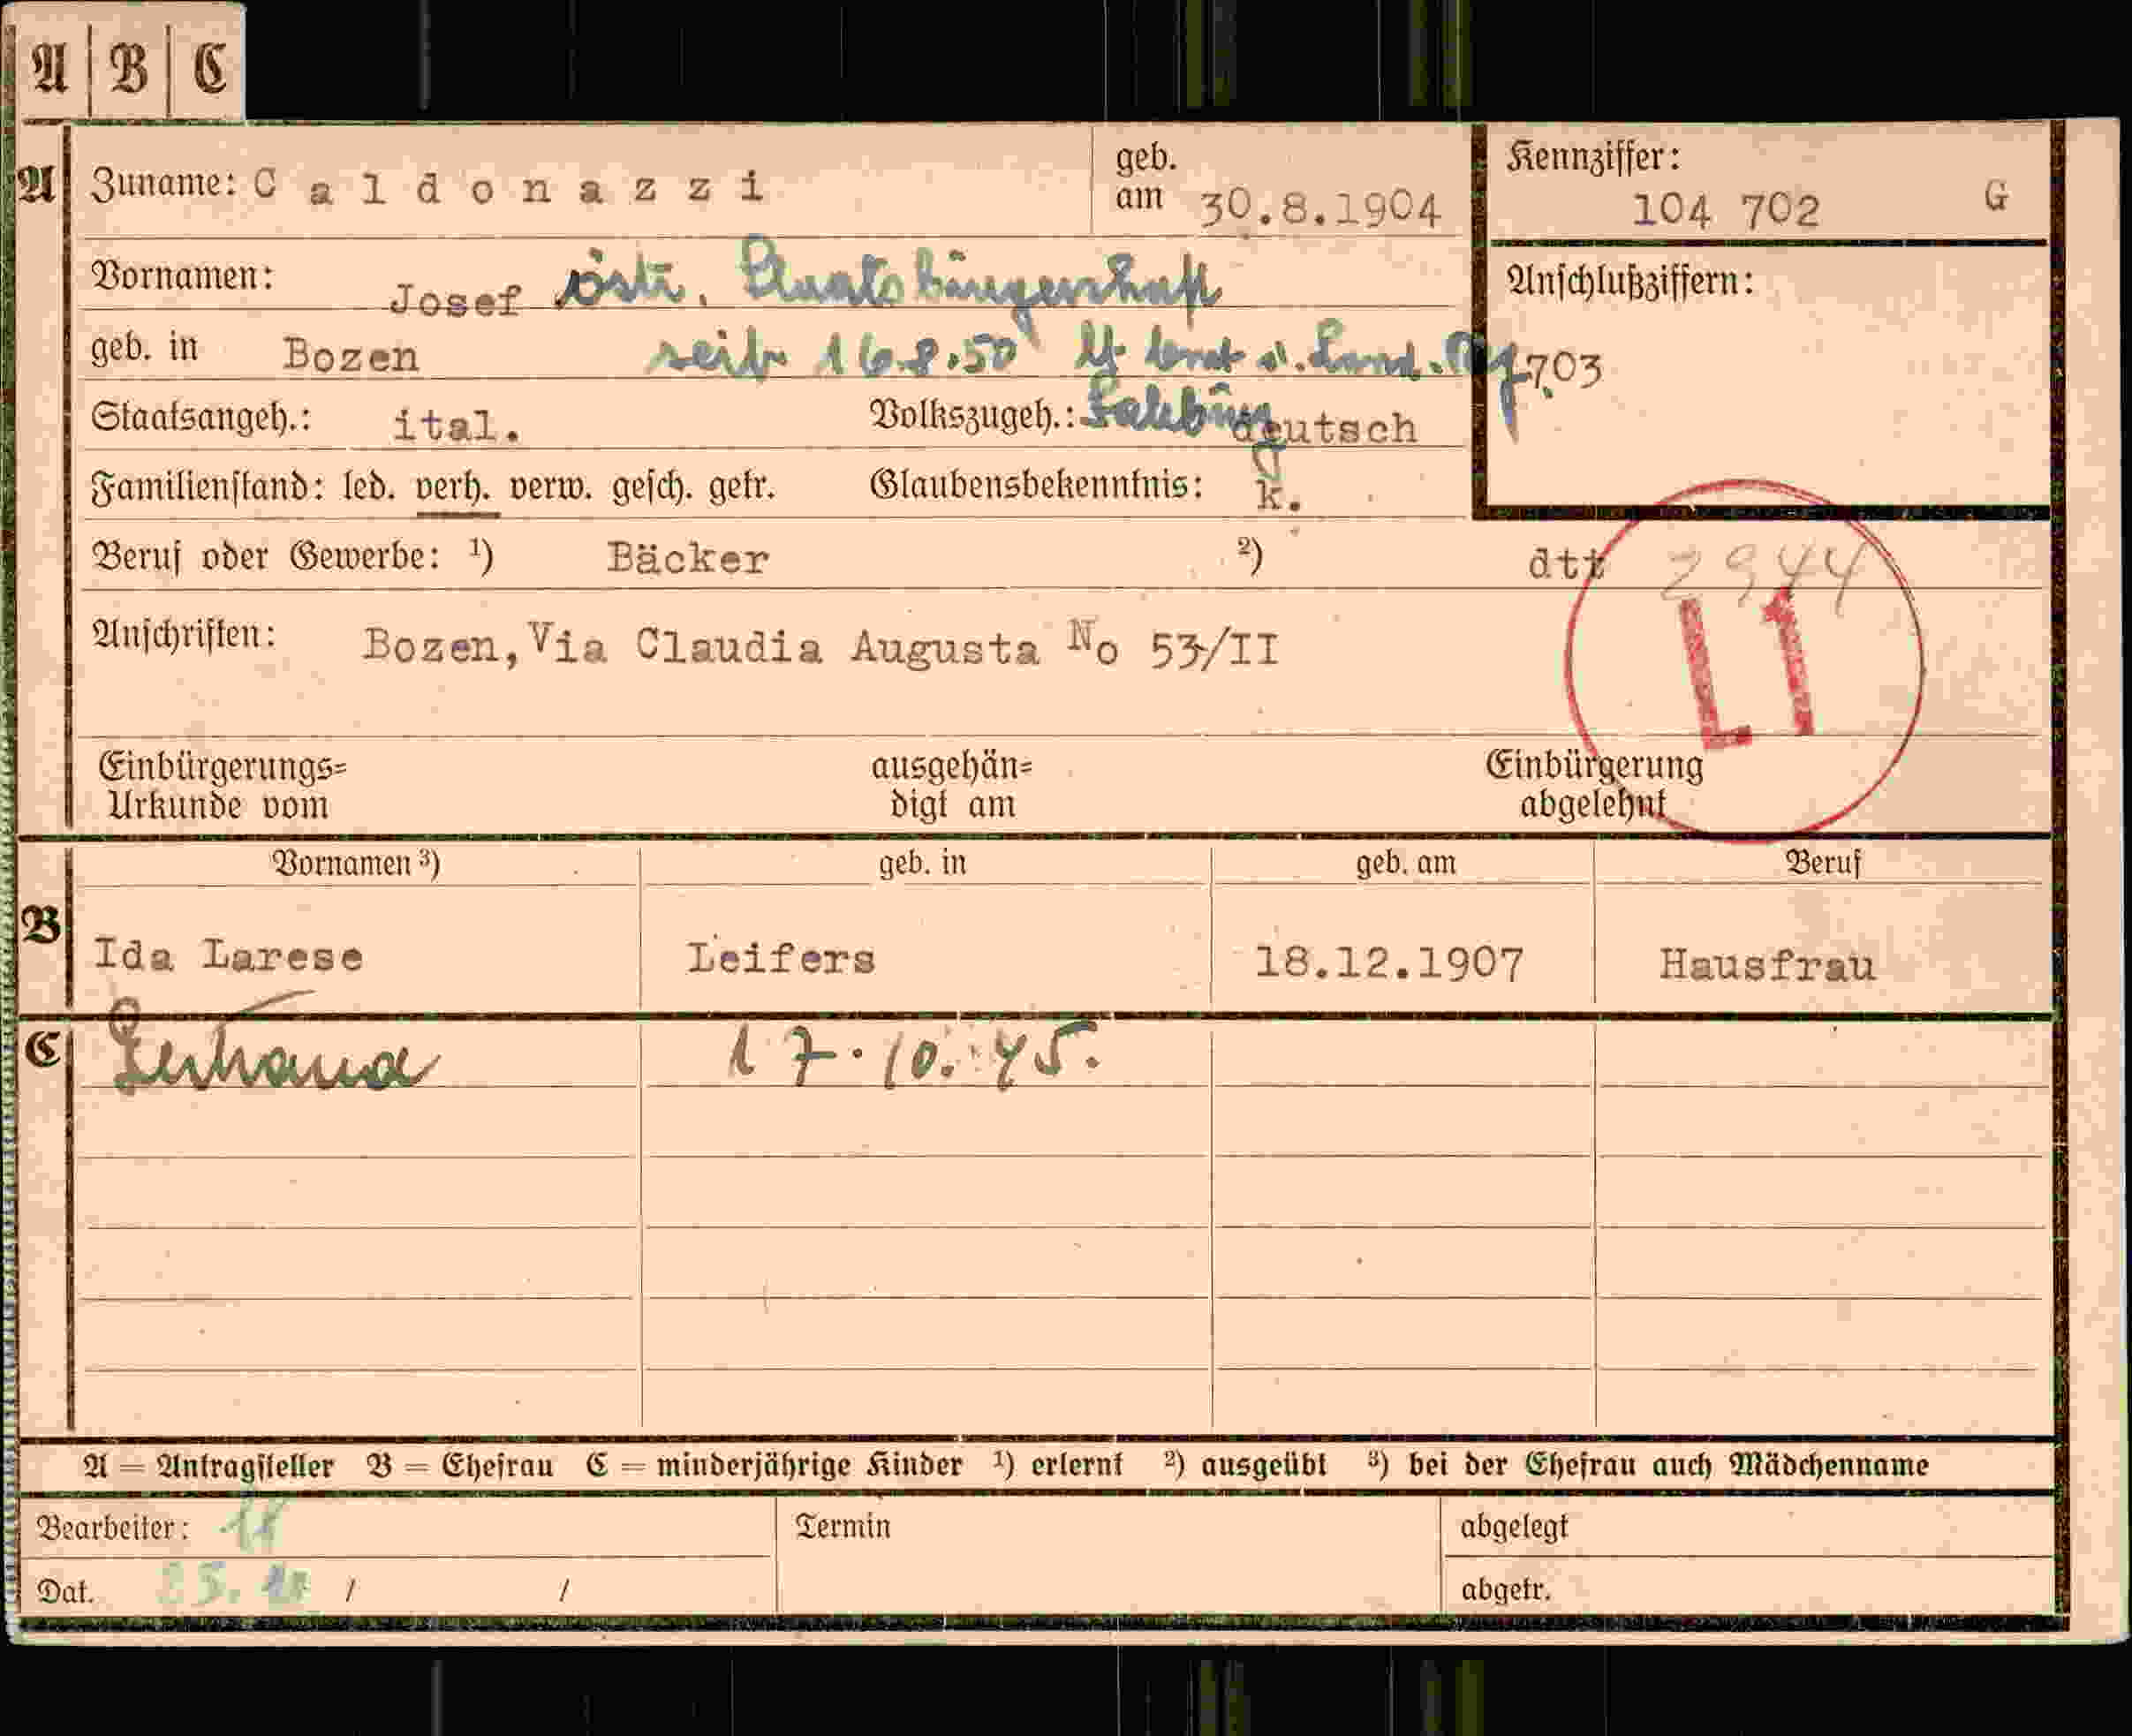 A B C
A Zuname: Caldonazzi geb. am 30.8.1904 Kennziffer: 104 702 G
Vornamen: Josef östr. Staatsbürgerschaft Anschlußziffern:
geb. in Bozen seit 16.8.50 lt. d. Land. Rg 703
Staatsangeh.: ital. Volkszugeh.: Salzburg deutsch
Familienstand: led. verh. verw. gesch. getr. Glaubensbekenntnis: k.
Beruf oder Gewerbe: ¹) Bäcker ²) dtt 2944
Anschriften: Bozen, Via Claudia Augusta No 53/II
L1
Einbürgerungs= ausgehän= Einbürgerung
Urkunde vom digt am abgelehnt
Vornamen ³) geb. in geb. am Beruf
B Ida Larese Leifers 18.12.1907 Hausfrau
C 17.10.45.
A = Antragsteller B = Ehefrau C = minderjährige Kinder ¹) erlernt ²) ausgeübt ³) bei der Ehefrau auch Mädchenname
Bearbeiter: Termin abgelegt
Dat. / / abgetr.